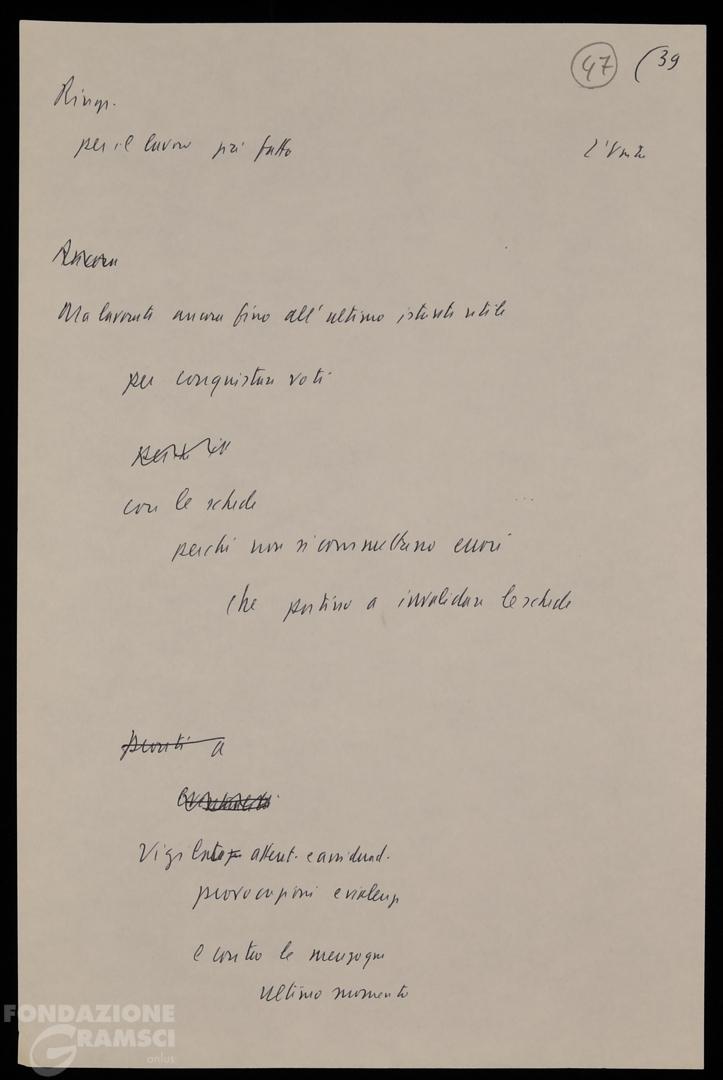 47 (39
Ringr.
per il lavoro già fatto l'Unità
Ancora
Ma lavorate ancora fino all'ultimo istante utile
per conquistare voti
con le schede
perché non si commettano errori
che portino a invalidare le schede
pronti a
Vigilate attent. e
provocazioni e violenze
e contro le menzogne
ultimo momento
FONDAZIONE
GRAMSCI
onlus